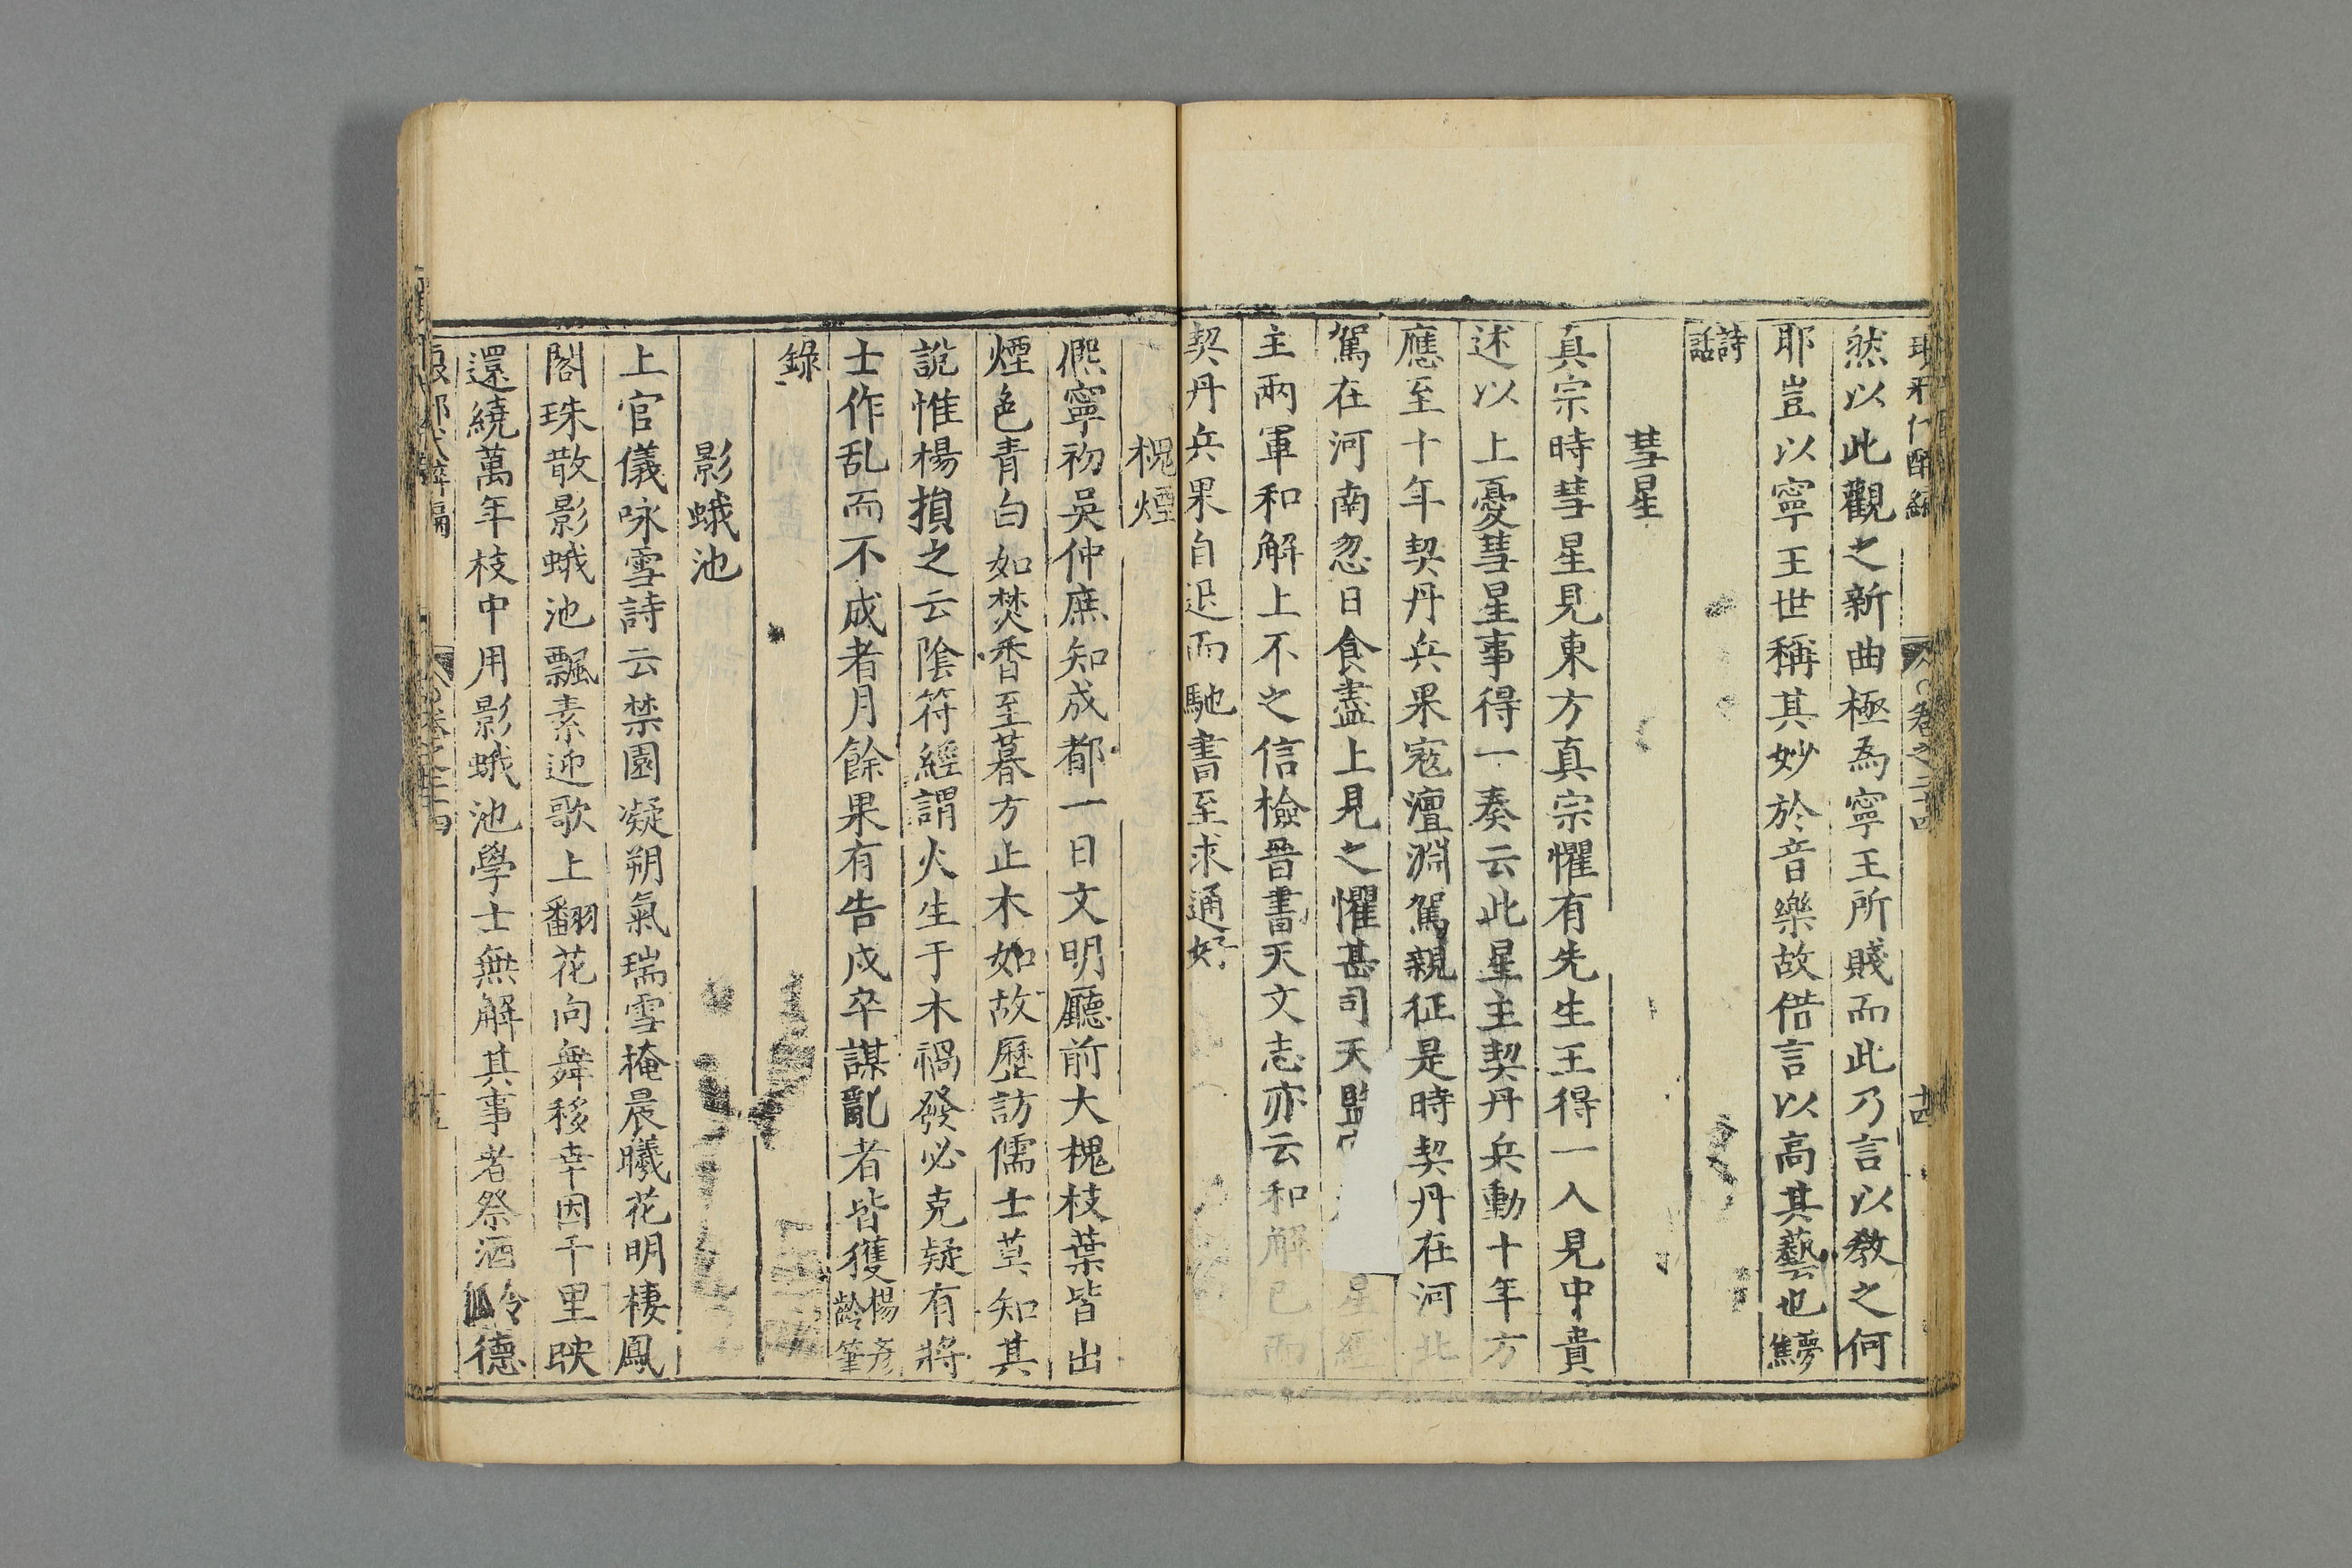 然以此觀之新曲極為寧王所賤而此乃言以教之何
耶豈以寧王世稱其妙於音樂故借言以高其藝也
詩話
彗星
真宗時彗星見東方真宗懼有先生王得一入見中貴
述以上憂彗星事得一奏云此星主契丹兵動十年方
應至十年契丹兵果寇澶淵駕親征是時契丹在河北
駕在河南忽日食盡上見之懼甚司天監 星經
主兩軍和解上不之信檢晉書天文志亦云和解已而
契丹兵果自退而馳書至求通好
槐煙
熈寧初吳仲庶知成都一日文明廳前大槐枝葉皆出
煙色青白如焚香至暮方止木如故歷訪儒士莫知其
說惟楊損之云陰符經謂火生于木禍發必克疑有將
士作乱而不成者月餘果有告戍卒謀亂者皆獲楊彥齡筆
錄
影蛾池
上官儀咏雪詩云禁園凝朔氣瑞雪掩晨曦花明棲鳳
閣珠散影蛾池飄素迎歌上翻花向舞移幸因千里映
還繞萬年枝中用影蛾池學士無解其事者祭酒令狐德